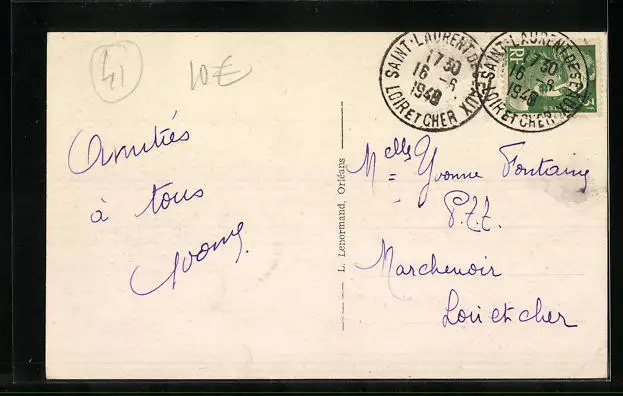 41
10€
SAINT-LAURENT-DES-EAUX
1730
16-6
1948
LOIR ET CHER
SAINT-LAURENT-DES-EAUX
1730
16-6
1948
LOIR ET CHER
RF
Amitiés
à tous
Yvonne
L. Lenormand, Orléans
Melle Yvonne Fontaine
P.T.T.
Marchenoir
Loir et cher